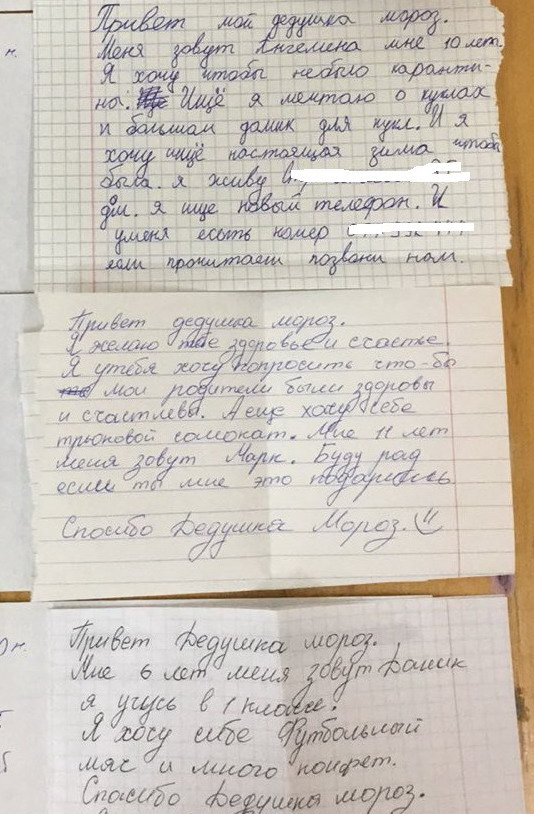 Привет мой дедушка мороз.
Меня зовут Ангелина мне 10 лет.
Я хочу чтобы небыло каранти-
на. Ищё я мечтаю о куклах
и большой домик для кукл. И я
хочу ищё настоящая зима чтобы
была. я живу
дм. я ище новый телефон. И
уменя есоть номер
если прочитаеш позвони нам.
Привет дедушка мороз.
Я желаю тебе здоровье и счастье.
Я утебя хочу попросить что-бы
мои родители были здоровы
и счастлевы. А еще хочу себе
трюковой самокат. Мне 11 лет
меня зовут Марк. Буду рад
если ты мне это подаришь
Спосибо Дедушка Мороз.
Привет Дедушка мороз.
Мне 6 лет меня зовут Даник
я учусь в 1 классе.
Я хосу себе Футбольный
мяч и много конфет.
Спосибо Дедушка мороз.